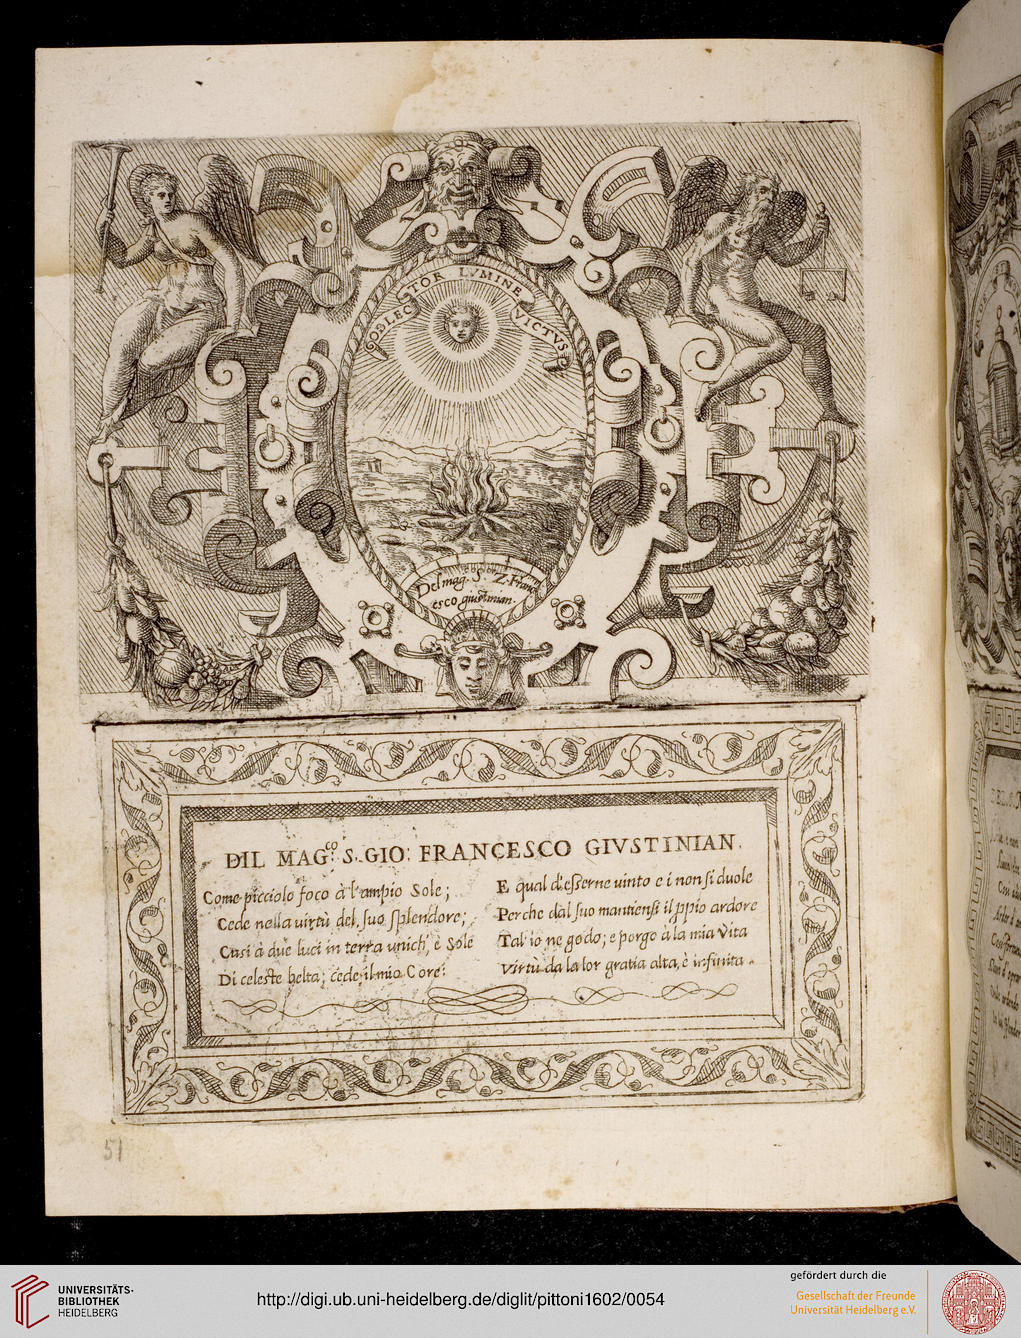 OBLEC
TOR LVMINE
VICTVS
Del mag. S. Z. Fran
esco giustinian.
DIL MAG:co S. GIO: FRANCESCO GIVSTINIAN.
Come picciolo foco à l'ampio Sole;
Cede nella uirtù del suo splendore;
Cusi à due luci in terra unich', è Sole
Di celeste belta; cede il mio Core:
E qual d'esserne uinto e i non si duole
Perche dal suo mantiensi il ppio ardore
Tal' io ne godo; e porgo à la mia Vita
Virtù da la lor gratia alta, è infinita.
51
UNIVERSITÄTS-
BIBLIOTHEK
HEIDELBERG
http://digi.ub.uni-heidelberg.de/diglit/pittoni1602/0054
gefördert durch die
Gesellschaft der Freunde
Universität Heidelberg e.V.